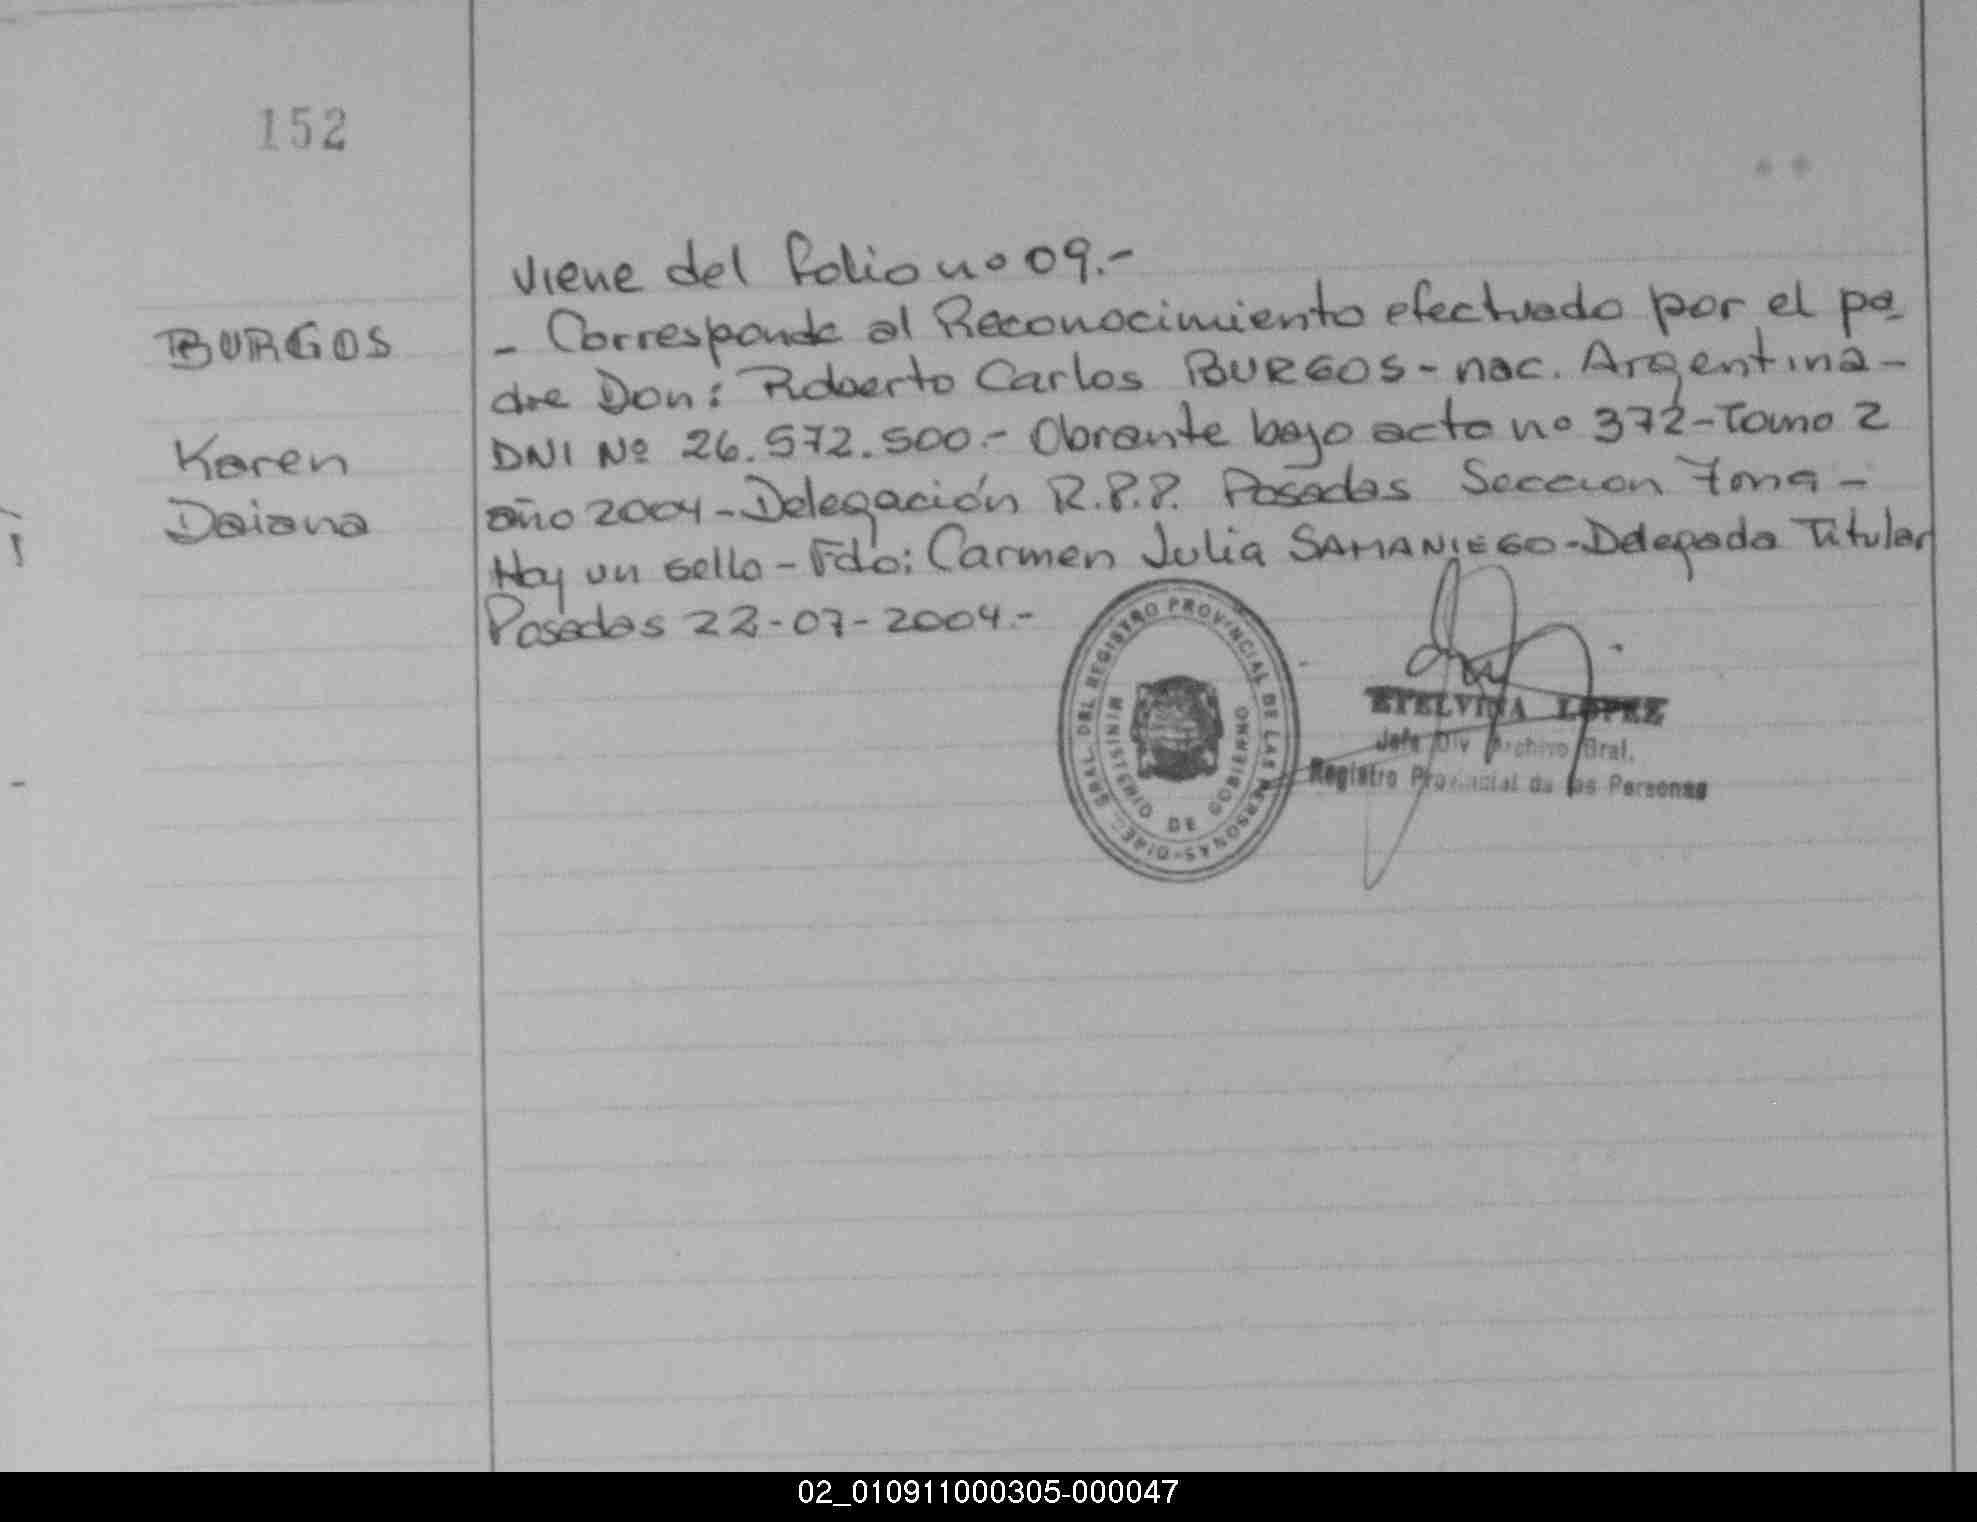 152
viene del folio nº 09.-
BURGOS
- Corresponde al Reconocimiento efectuado por el pa-
dre Don: Roberto Carlos BURGOS - nac. Argentina -
Karen
DNI Nº 26.572.500.- Obrante bajo acta nº 372 - Tomo 2
Daiana
año 2004 - Delegación R.P.P. Posadas Seccion 7ma -
Hay un sello - Fdo: Carmen Julia SAMANIEGO - Delegada Titular
Posadas 22-07-2004.-
DIREC. GRAL. DEL REGISTRO PROVINCIAL DE LAS PERSONAS
MINISTERIO DE GOBIERNO
ETELVINA LOPEZ
Jefe Div Archivo Gral.
Registro Provincial de las Personas
02_010911000305-000047